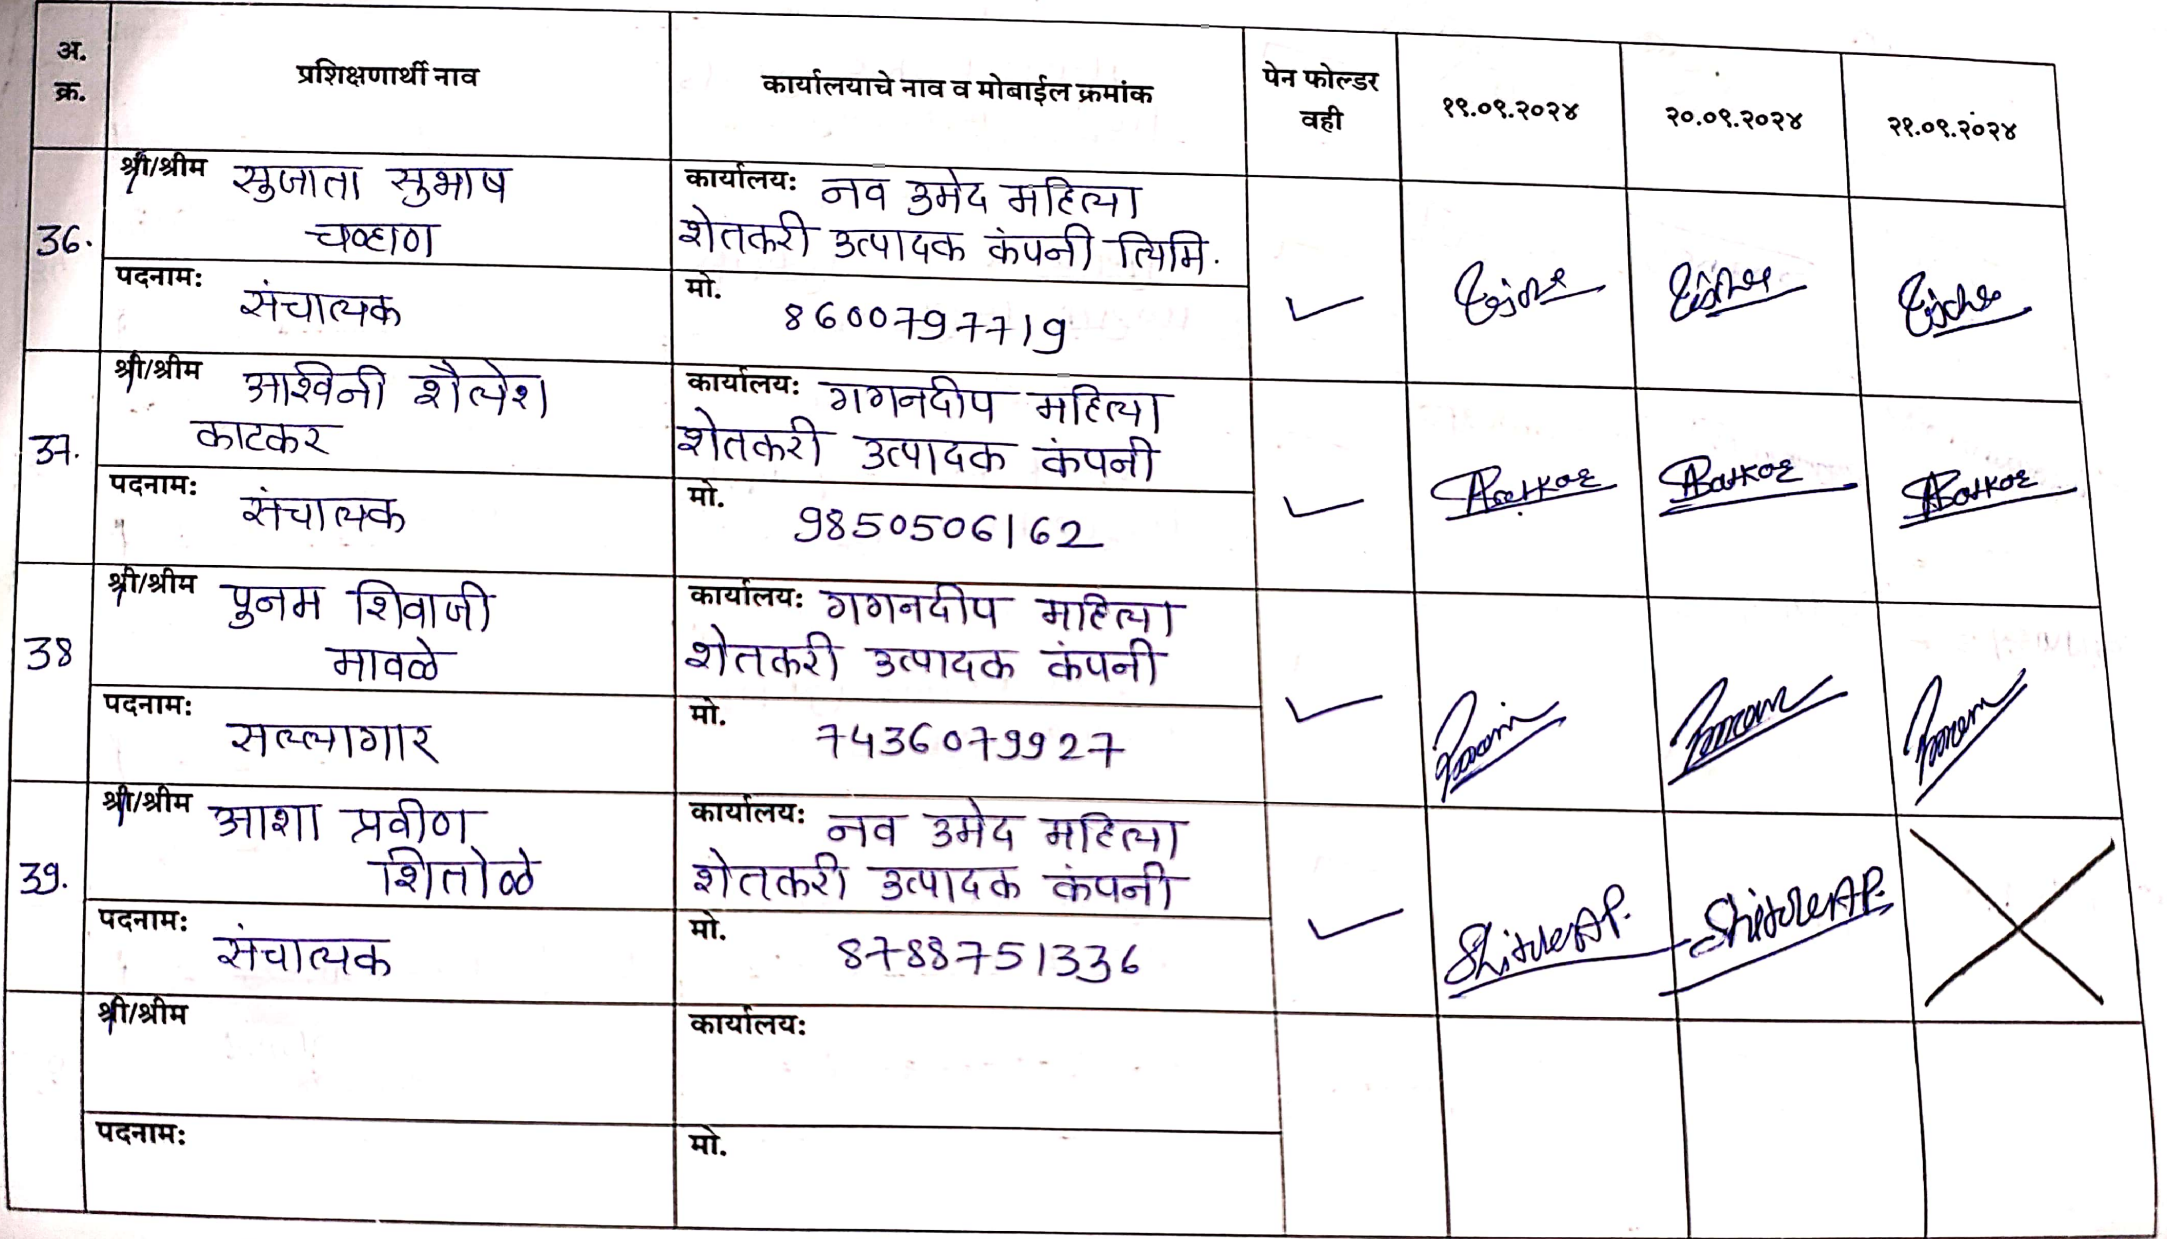 अ.
क्र.
प्रशिक्षणार्थी नाव
कार्यालयाचे नाव व मोबाईल क्रमांक
पेन फोल्डर
वही
१९.०९.२०२४
२०.०९.२०२४
२१.०९.२०२४
36.
श्री/श्रीम सुजाता सुभाष
चव्हाण
कार्यालय: नव उमेद महिला
शेतकरी उत्पादक कंपनी लिमि.
पदनाम: संचालक
मो. 8600797719
37.
श्री/श्रीम आश्विनी शैलेश
काटकर
कार्यालय: गगनदीप महिला
शेतकरी उत्पादक कंपनी
पदनाम: संचालक
मो. 9850506162
38
श्री/श्रीम पुनम शिवाजी
मावळे
कार्यालय: गगनदीप महिला
शेतकरी उत्पादक कंपनी
पदनाम: सल्लागार
मो. 7436079927
39.
श्री/श्रीम आशा प्रवीण
शितोळे
कार्यालय: नव उमेद महिला
शेतकरी उत्पादक कंपनी
पदनाम: संचालक
मो. 8788751336
ShitoleAP.
ShitoleAP.
श्री/श्रीम
कार्यालय:
पदनाम:
मो.